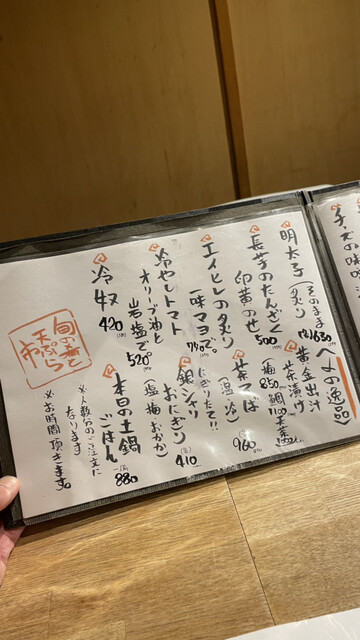 〆の逸品〉
明太子(そのまま
炙り 各650
長芋のたんざく
卵黄のせ 500
エイヒレの炙り
一味マヨで。 740
冷やしトマト
オリーブ油と
岩塩で 520
冷奴 420
黄金出汁
茶漬け
(梅 850 鯛 1100
茶そば
(温・冷) 960
銀シャリ
おにぎり にぎりたて!!
(塩 梅 おかか) 410
本日の土鍋
ごはん 880
※人数分のご注文に
なります。
※お時間頂きます。
旬の肴と
天ぷら